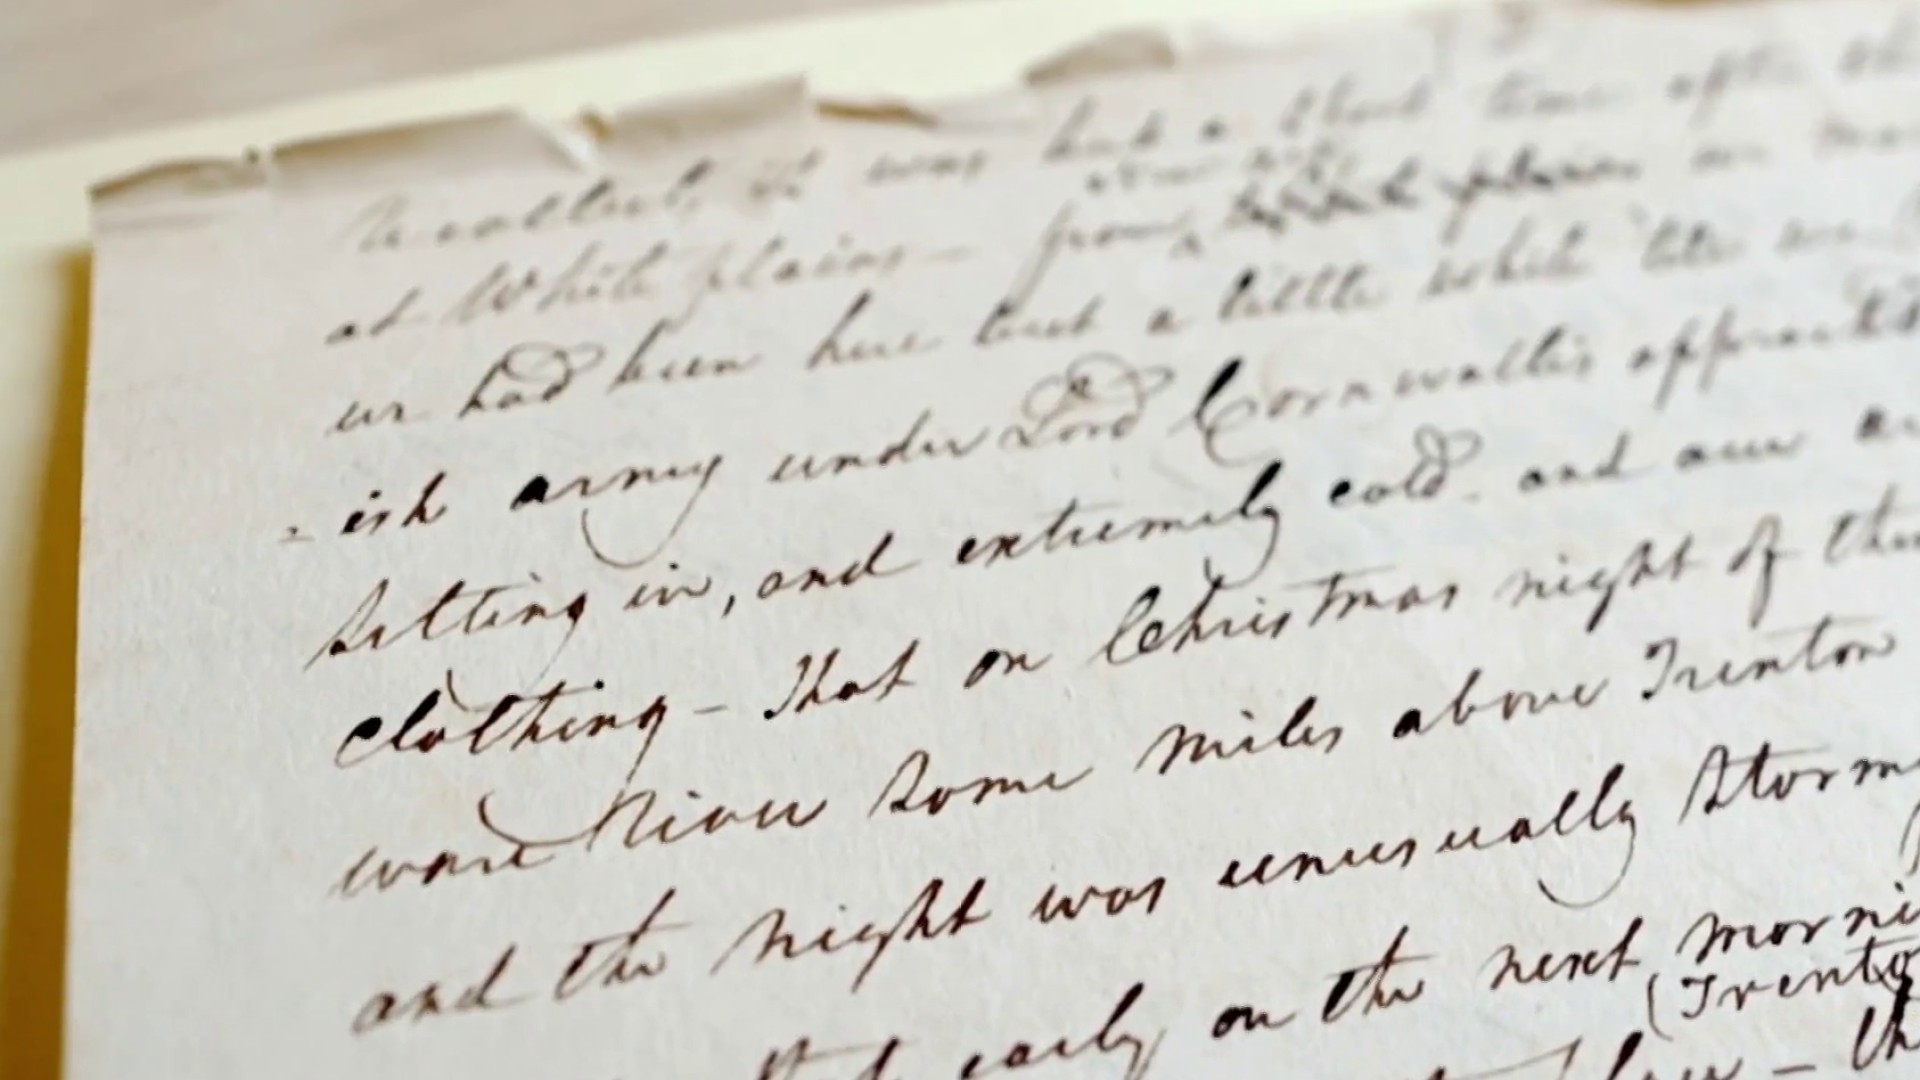 recollect, it was but a short time after the
at White plains — from
we had been here but a little while
-ish army under Lord Cornwallis
setting in, and extremely cold. and our
clothing – That on Christmas night of
ware River some miles above Trenton
and the night was unusually
early on the next
(Trento